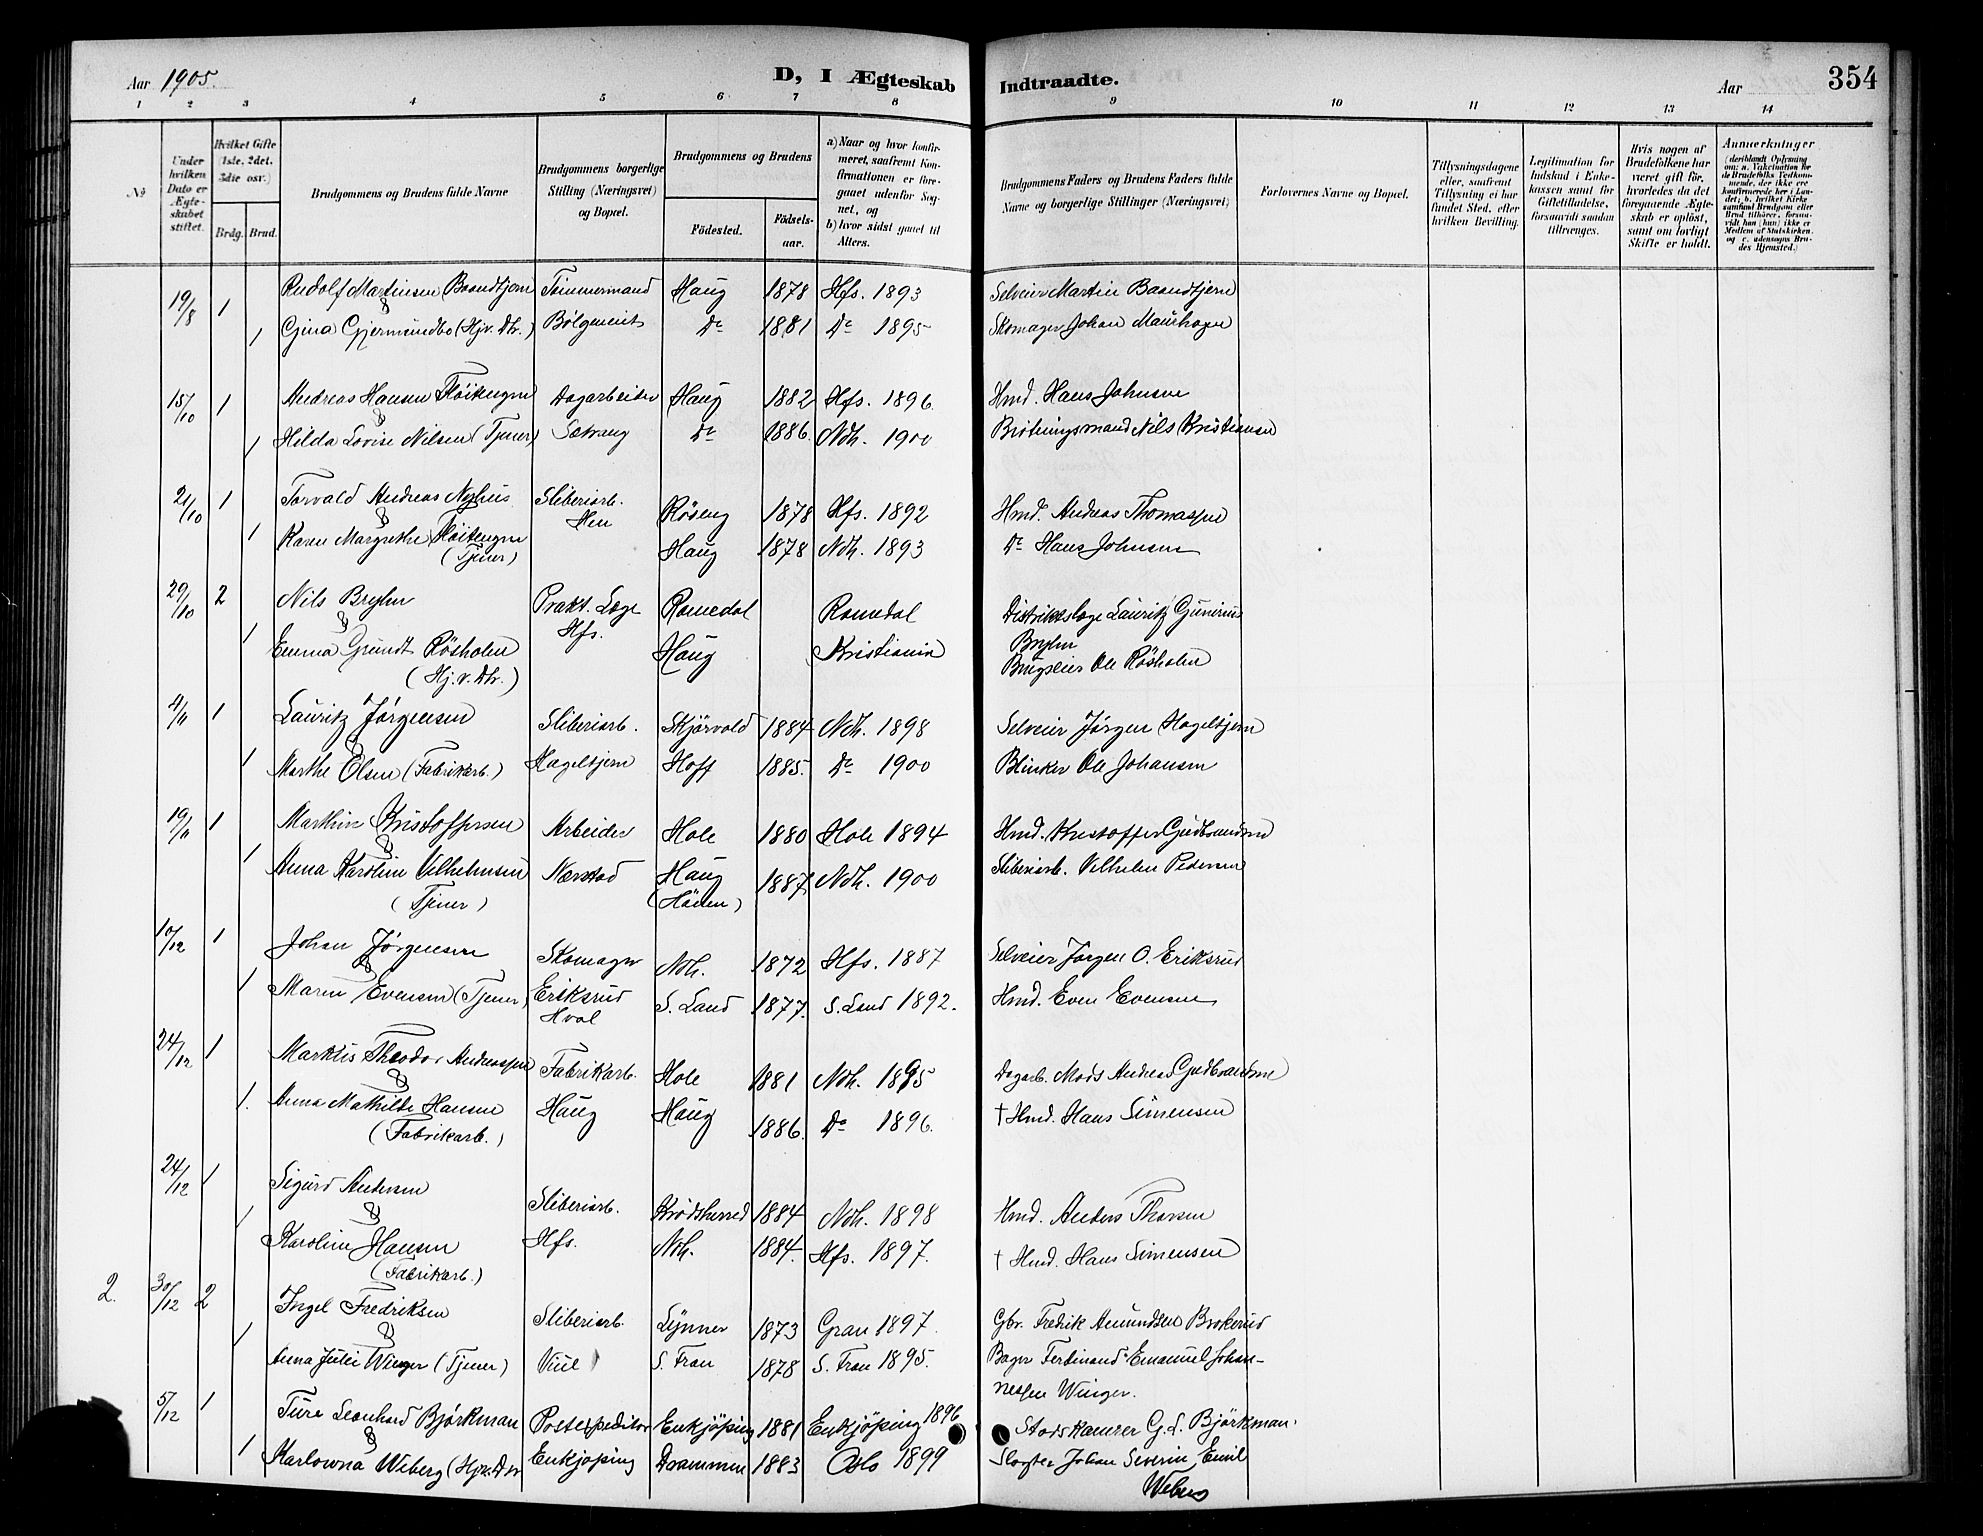 Aar 1905.
D, I Ægteskab
Indtraadte.
Aar
354
1 2 3 4 5 6 7 8 9 10 11 12 13 14
№
Under hvilken Dato er Ægteskabet stiftet.
Hvilket Gifte (1ste, 2det, 3die osv.)
Brdg. Brud.
Brudgommens og Brudens fulde Navne
Brudgommens borgerlige Stilling (Næringsvei) og Bopæl.
Brudgommens og Brudens
Fødested.
Fødselsaar.
a) Naar og hvor konfirmeret, saafremt Konfirmationen er foregaaet udenfor Sognet, og
b) hvor sidst gaaet til Alters.
Brudgommens Faders og Brudens Faders fulde Navne og borgerlige Stillinger (Næringsvei)
Forlovernes Navne og Bopæl.
Tillysningsdagene eller, saafremt Tillysning ei har fundet Sted, efter hvilken Bevilling.
Legitimation for Indskud i Enkekassen samt for Giftetilladelse, forsaavidt saadan tiltrænges.
Hvis nogen af Brudefolkene har været gift før, hvorledes da det foregaaende Ægteskab er opløst, samt om lovligt Skifte er holdt.
Anmærkninger
(deriblandt Oplysning om: a. Vakcination for de Brudefolks Vedkommende, der ikke ere konfirmerede her i Landet; b. hvilket Kirkesamfund Brudgom eller Brud tilhører, forsaavidt han (hun) ikke er Medlem af Statskirken, og c. udensogns Brudes Hjemsted.)
19/8 1 Rudolf Martinsen Baandtjern Tømmermand Haug 1878 Hfs. 1893 Selveier Martin Baandtjern
&
1 Gina Gjermundbo (Hjv. Dtr.) Bölgeneint Do 1881 Do 1895 Skomager Johan Maurhagen
15/10 1 Andreas Hansen Flöitengen Dagarbeider Haug 1882 Hfs. 1896. Hmd. Hans Johnsen
&
1 Hilda Lovise Nilsen (Tjener) Sætrang Do 1886. Ndh. 1900 Brötningsmand Nils Kristiansen
21/10 1 Torvald Andreas Nyhus Sliberiarb. Røseng 1878 Hfs. 1892 Hmd. Andreas Thomassen
& Hen
1 Karen Margrethe Flöitengen Haug 1878 Ndh. 1893 Do Hans Johnsen
(Tjener)
29/10 2 Nils Bryhn Prakt. Læge Romedal Romedal Distriktslæge Lauritz Gunerius
& Hfs. Bryhn
1 Emma Grundt Røsholm Haug Kristiania Brugseier Ole Røsholm
(Hj.v. Dtr.)
4/11 1 Lauritz Jørgensen Sliberiarb. Skjørvold 1884 Ndh. 1898 Selveier Jørgen Hagelsjern
&
1 Marthe Olsen (Fabrikarb.) Hagelsjern Hoff 1885. Do 1900 Blinker Ole Johansen
19/11 1 Marthin Kristoffersen Arbeider Hole 1880 Hole 1894 Hmd. Kristoffer Gudbrandsen
&
1 Anna Karoline Vilhelmsen Nærstad Haug 1887 Ndh. 1900 Sliberiarb. Vilhelm Pedersen
(Tjener) (Hönen)
10/12 1 Johan Jørgensen Skomager Ndh. 1872 Hfs. 1887 Selveier Jørgen O. Eriksrud
&
1 Maren Evensen (Tjener) Eriksrud S. Land 1877. S. Land 1892. Hmd. Even Evensen
Hval
24/12 1 Markus Theodor Andreassen Fabrikarb. Hole 1881 Ndh. 1895 Dagarb. Mads Andreas Gudbrandsen
&
1. Anna Mathilde Hansen Haug Haug 1886. Do 1896. † Hmd. Hans Simensen
(Fabrikarb.)
24/12 1 Sigurd Andersen Sliberiarb. Krødsherred 1884 Ndh. 1898 Hmd. Anders Thorsen
&
1 Karoline Hansen Hfs. Ndh. 1884. Hfs. 1897. † Hmd. Hans Simensen
(Fabrikarb.)
2. 30/12 2 Ingel Fredriksen Sliberiarb. Lynner 1873 Gran 1897. Gbr. Fredrik Amundsen Brokerud
&
1 Anna Julie Winger (Tjener) Viul S. Fron 1878 S. Fron 1895. Bager Ferdinand Emanuel Johan-
nessen Winger.
5/12 1 Ture Leonhard Björkman Postexpeditör Enkjöping 1881 Enkjöping 1896 Stadskamrer G. L. Björkman.
&
1 Karlowna Weberg (Hjv. Dtr Enkjöping Drammen 1883 Oslo 1899 Slagter Johan Severin Emil
Weberg